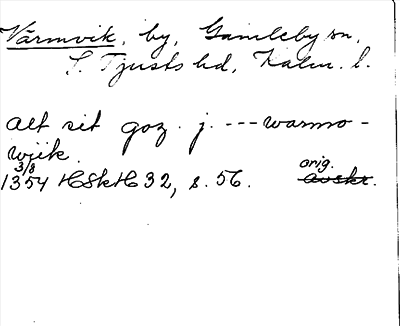 Värmvik, by, Gamleby sn,
S. Tjusts hd, Kalm. l.
alt sit goz . j. --- warmo-
wijk.
3/8
1354 HSkH 32, s. 56. orig.
avskr.